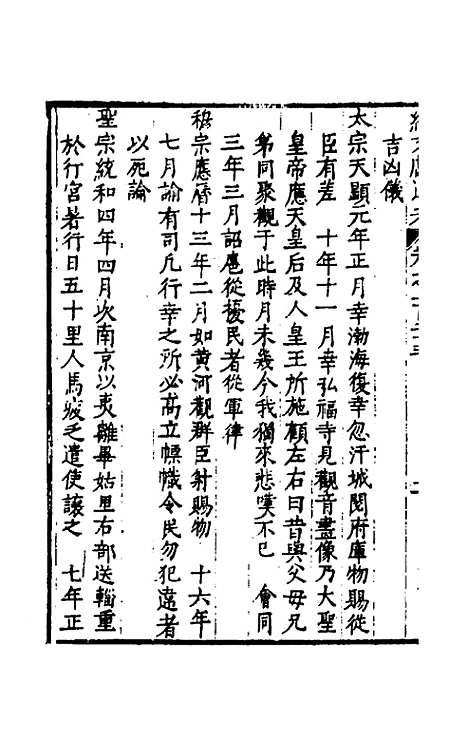 吉凶儀
太宗天顯元年正月幸渤海復幸忽汗城閱府庫物賜從
臣有差　十年十一月幸弘福寺見觀音畫像乃大聖
皇帝應天皇后及人皇王所施顧左右曰昔與父母兄
弟同聚觀于此時月未幾今我獨來悲嘆不已　會同
三年三月詔扈從擾民者從軍律
穆宗應曆十三年二月如黃河觀群臣射賜物　十六年
七月諭有司凡行幸之所必高立幖幟令民勿犯違者
以死論
聖宗統和四年四月次南京以夷離畢姑里右部送輜重
於行宮著行日五十里人馬疲乏遣使讓之　七年正